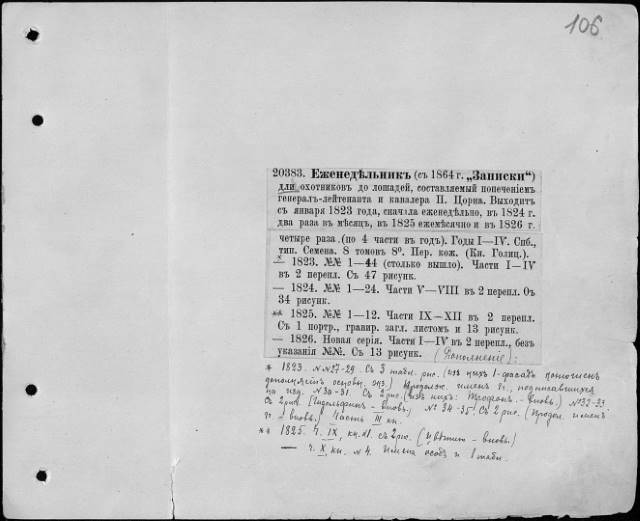 106
20383. Еженедѣльникъ (съ 1864 г. „Записки“)
для охотниковъ до лошадей, составляемый попеченіемъ
генералъ-лейтенанта и кавалера П. Цорна. Выходитъ
съ января 1823 года, сначала еженедѣльно, въ 1824 г.
два раза въ мѣсяцъ, въ 1825 ежемѣсячно и въ 1826 г.
четыре раза (по 4 части въ годъ). Годы I—IV. Спб.,
тип. Семена. 8 томовъ 8º. Пер. кож. (Кн. Голиц.).
* — 1823. №№ 1—44 (столько вышло). Части I—IV
въ 2 перепл. Съ 47 рисунк.
— 1824. №№ 1—24. Части V—VIII въ 2 перепл. Съ
34 рисунк.
** 1825. №№ 1—12. Части IX—XII въ 2 перепл.
Съ 1 портр., гравир. загл. листомъ и 13 рисунк.
— 1826. Новая серія. Части I—IV въ 2 перепл., безъ
указанія №№. Съ 13 рисунк. (Дополненіе):
* 1823. №№27-29. Съ 3 табл. рис. (изъ нихъ 1-
) Продолж. именъ г., подписавшихся
на изд. №30-31. Съ 2 рис. (изъ нихъ: - вновь) №32-33
Съ 2 рис. ( - вновь) № 34-35. Съ 2 рис. (Продол. именъ
г. вновь) Часть III кн.
** 1825. Ч. IX, кн. 1. съ 2 рис. ( - вновь)
— Ч. X, кн. № 4. Имена особъ и 1 табл.